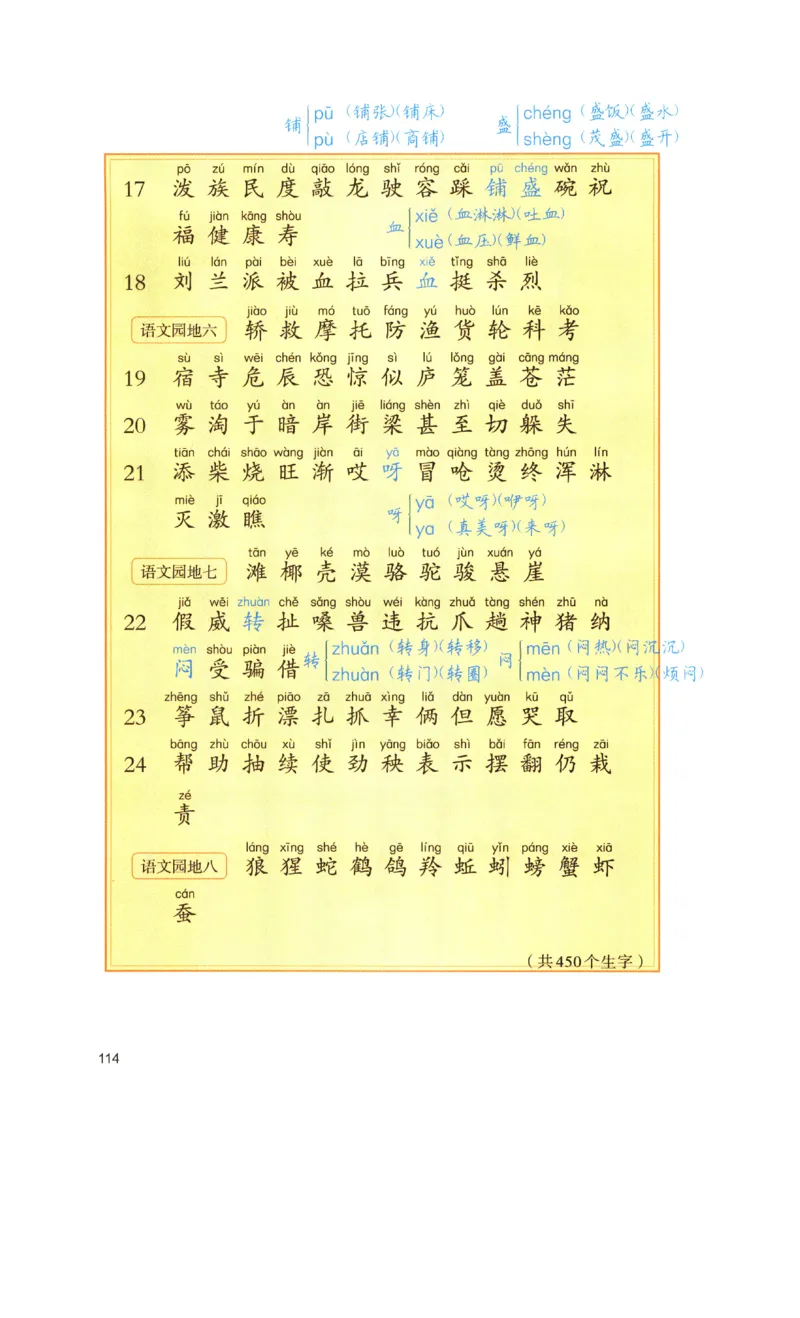 铺 pū（铺张）（铺床）
pù（店铺）（商铺）
盛 chéng（盛饭）（盛水）
shèng（茂盛）（盛开）
pō zú mín dù qiāo lóng shǐ róng cǎi pū chéng wǎn zhù
17 泼 族 民 度 敲 龙 驶 容 踩 铺 盛 碗 祝
fú jiàn kāng shòu
福 健 康 寿
血 xiě（血淋淋）（吐血）
xuè（血压）（鲜血）
liú lán pài bèi xuè lā bīng xiě tǐng shā liè
18 刘 兰 派 被 血 拉 兵 血 挺 杀 烈
jiào jiù mó tuō fáng yú huò lún kē kǎo
语文园地六 轿 救 摩 托 防 渔 货 轮 科 考
sù sì wēi chén kǒng jīng sì lú lǒng gài cāng máng
19 宿 寺 危 辰 恐 惊 似 庐 笼 盖 苍 茫
wù táo yú àn àn jiē liáng shèn zhì qiè duǒ shī
20 雾 淘 于 暗 岸 街 梁 甚 至 切 躲 失
tiān chái shāo wàng jiàn āi yā mào qiàng tàng zhōng hún lín
21 添 柴 烧 旺 渐 哎 呀 冒 呛 烫 终 浑 淋
miè jī qiáo
灭 激 瞧
呀 yā（哎呀）（咿呀）
ya（真美呀）（来呀）
tān yē ké mò luò tuó jùn xuán yá
语文园地七 滩 椰 壳 漠 骆 驼 骏 悬 崖
jiǎ wēi zhuàn chě sǎng shòu wéi kàng zhuǎ tàng shén zhū nà
22 假 威 转 扯 嗓 兽 违 抗 爪 趟 神 猪 纳
mèn shòu piàn jiè
闷 受 骗 借
转 zhuǎn（转身）（转移）
zhuàn（转门）（转圈）
闷 mēn（闷热）（闷沉沉）
mèn（闷闷不乐）（烦闷）
zhēng shǔ zhé piāo zā zhuā xìng liǎ dàn yuàn kū qǔ
23 筝 鼠 折 漂 扎 抓 幸 俩 但 愿 哭 取
bāng zhù chōu xù shǐ jìn yāng biǎo shì bǎi fān réng zāi
24 帮 助 抽 续 使 劲 秧 表 示 摆 翻 仍 栽
zé
责
láng xīng shé hè gē líng qiū yǐn páng xiè xiā
语文园地八 狼 猩 蛇 鹤 鸽 羚 蚯 蚓 螃 蟹 虾
cán
蚕
（共450个生字）
114